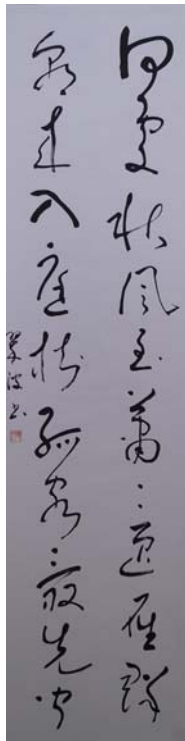 何處秋風至蕭々送雁群
朝来入庭樹孤客最先聞